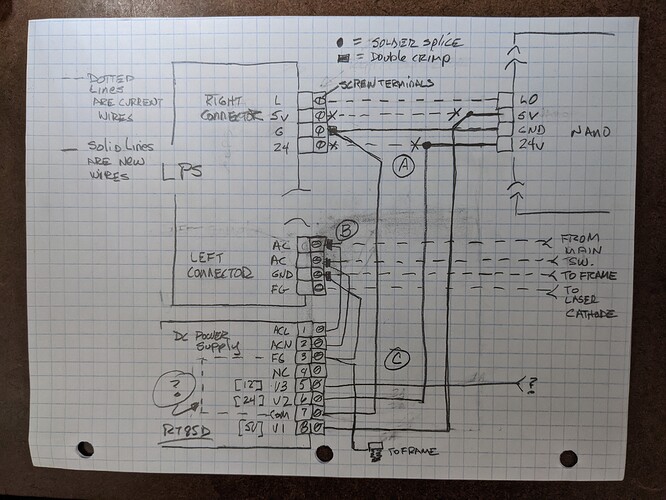 ● = SOLDER SPLICE
■ = Double CRIMP
--- DOTTED
Lines
ARE CURRENT
WIRES
— Solid Lines
ARE NEW
WIRES
LPS
SCREW TERMINALS
RIGHT
CONNECTOR
L
5V
G
24
LO
5V
GND
24V
NANO
A
B
LEFT
CONNECTOR
AC
AC
GND
FG
FROM
MAIN
SW.
TO FRAME
TO
LASER
CATHODE
DC POWER
Supply
?
RT85D
ACL 1
ACN 2
FG 3
NC 4
[12] V3 5
[24] V2 6
COM 7
[5V] V1 8
C
?
TO FRAME